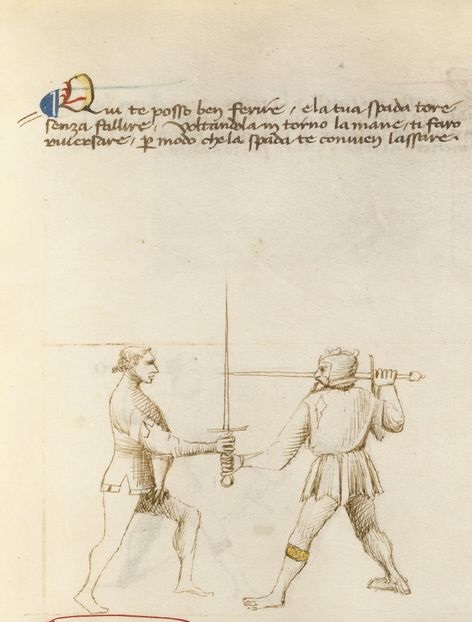 Qui te posso ben ferire, e la tua spada tore
senza fallire. Voltandola in torno la mane, ti faro
riversare, p modo che la spada te convien lassare.